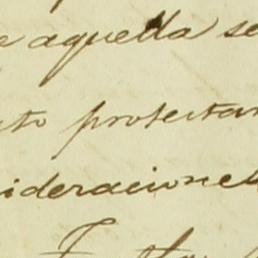 e aquella se
to protestan
ideraciones